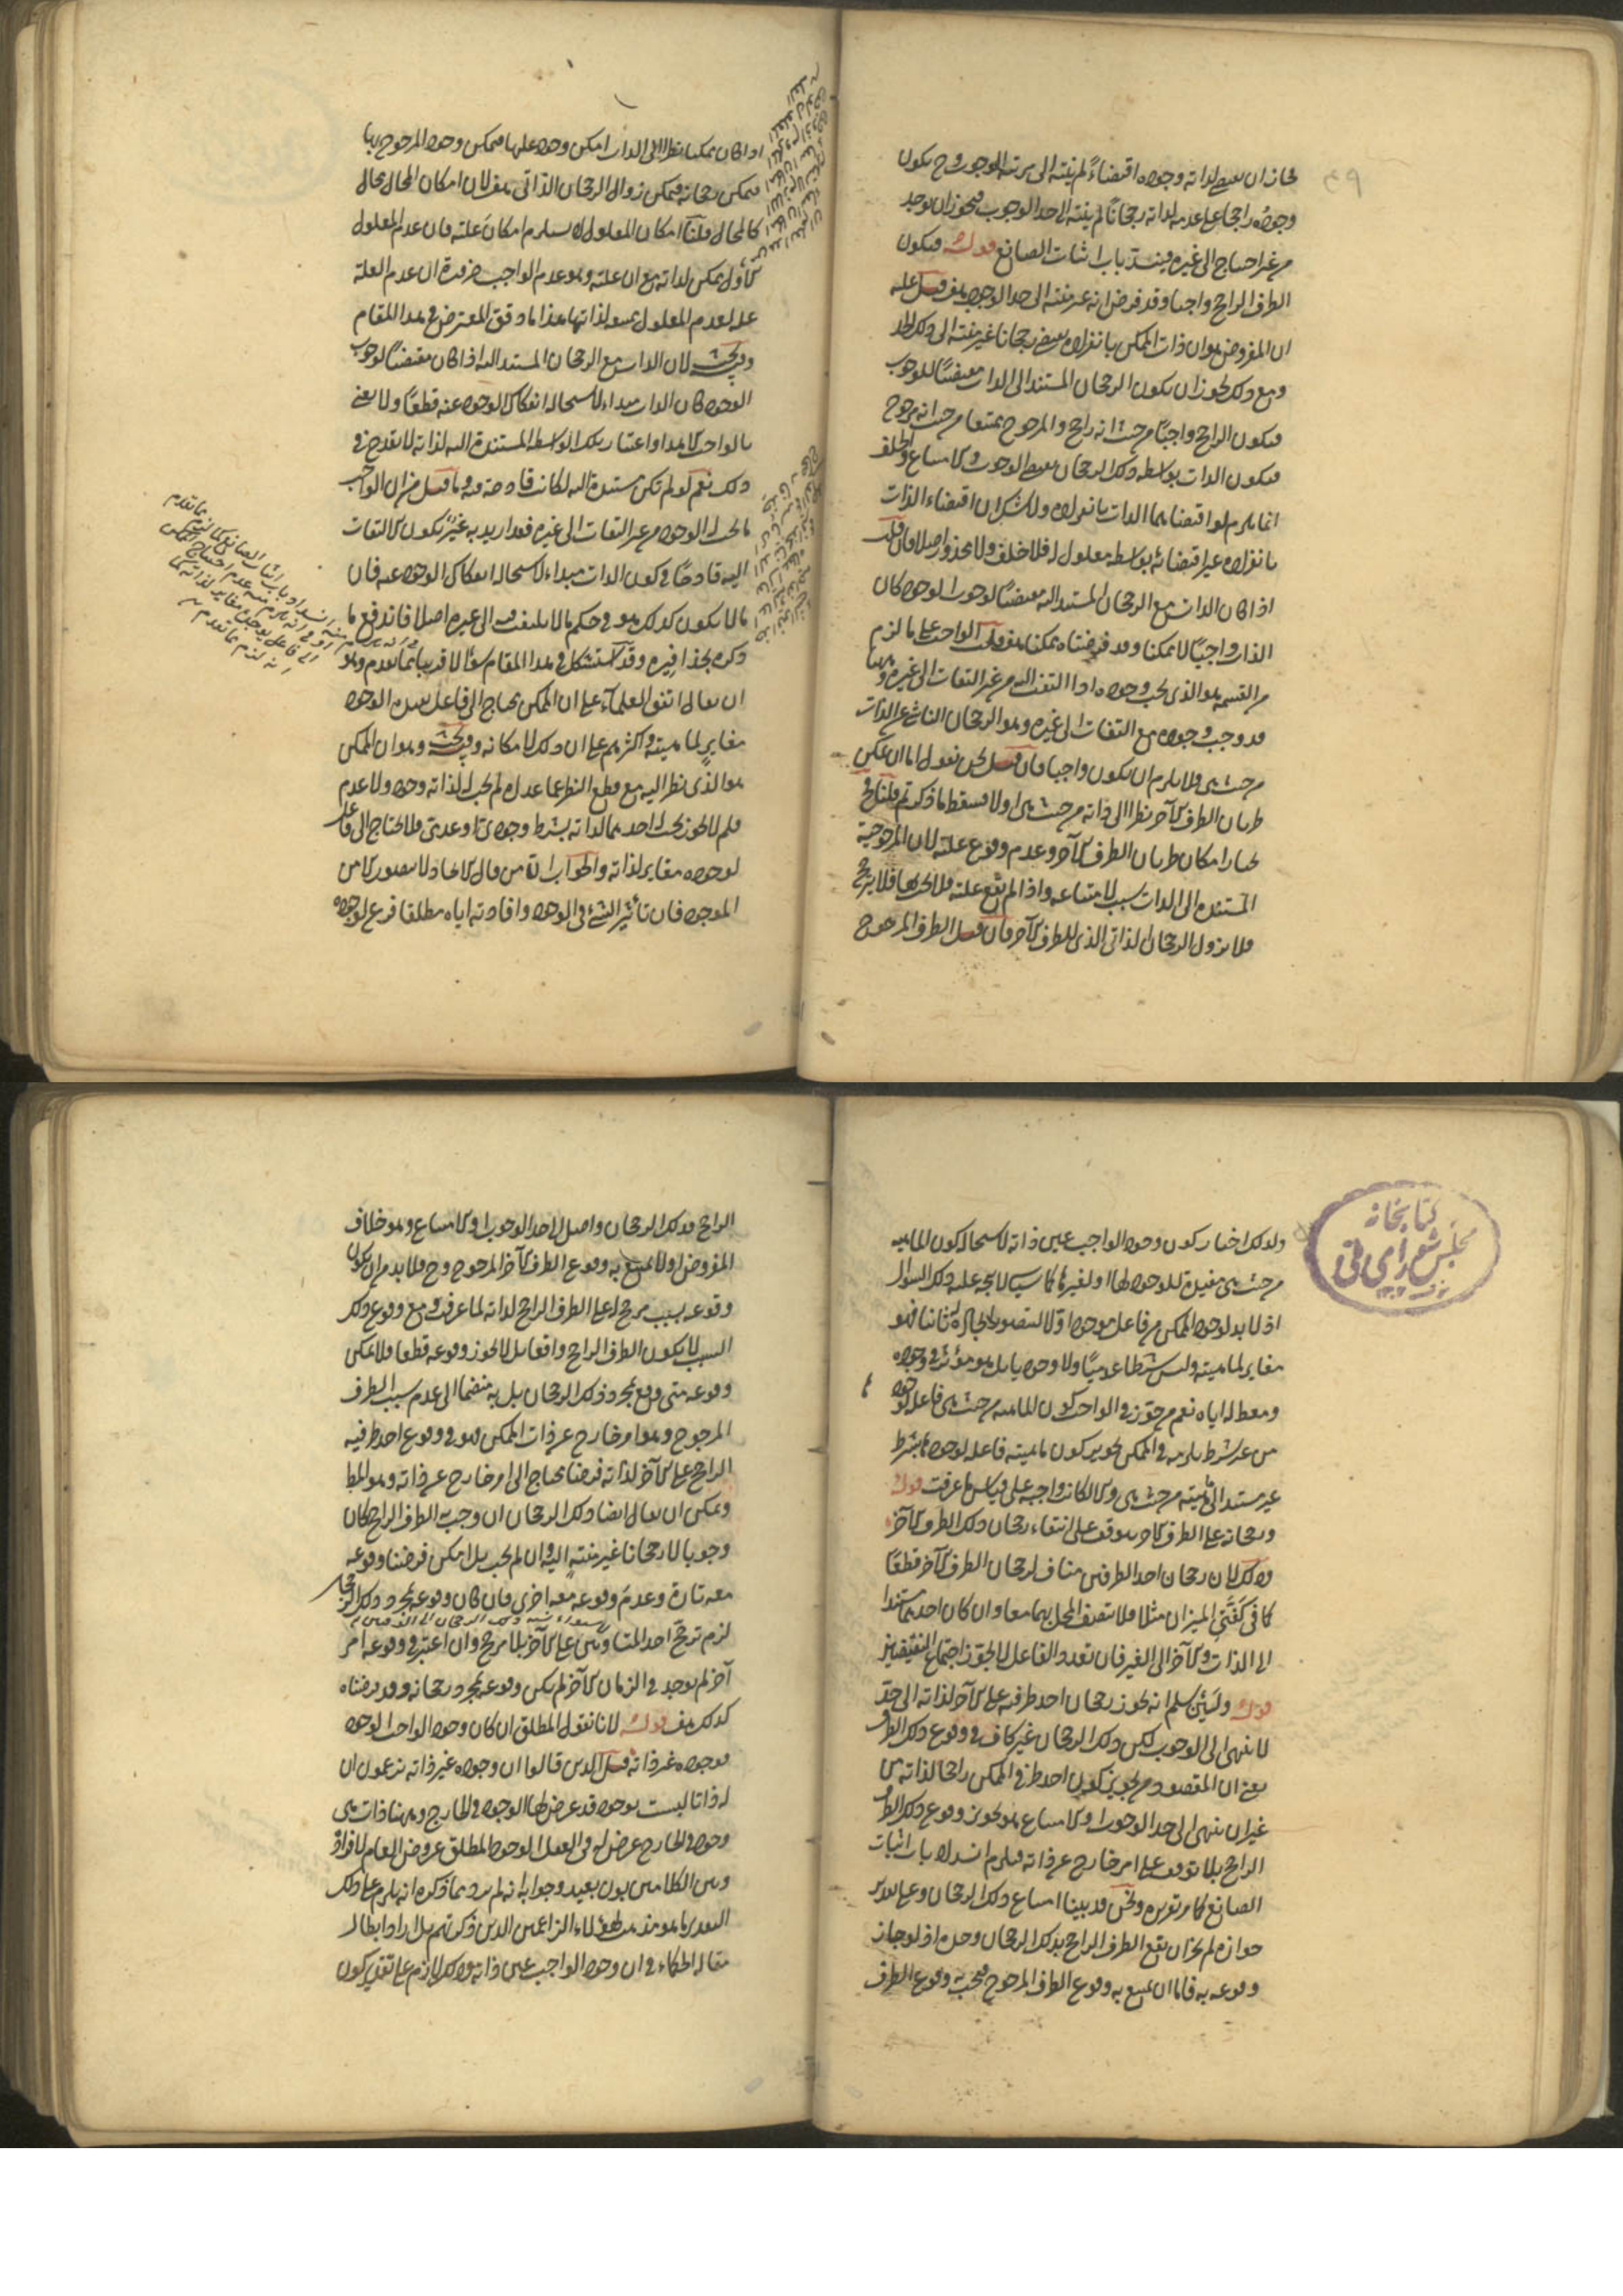 لجاز ان يقتضي لذاته وجوده اقتضاءً لم ينته الى مرتبة الوجوب وح يكون
وجوده راجحا على عدمه لذاته رجحانًا لم ينته الى حد الوجوب فيجوز ان يوجد
من غير احتياج الى غيره فينسد باب اثبات الصانع قوله فيكون
الطرف الراجح واجبا وقد فرض انه غير منته الى حد الوجوب هف قيل عليه
ان المفروض هو ان ذات الممكن بانفراده يقتضي رجحانا غير منته الى ذلك الحد
ومع ذلك يجوز ان يكون الرجحان المستند الى الذات مقتضيًا للوجوب
فيكون الراجح واجبًا من حيث انه راجح والمرجوح ممتنعا من حيث انه مرجوح
فيكون الذات بواسطة ذلك الرجحان يقتضي الوجوب ولا امتناع والخلف
انما يلزم لو اقتضاهما الذات بانفراده ولا شك ان اقتضاء الذات
بانفراده غير اقتضائه بواسطة معلول له فلا خلف ولا محذور اصلا فان قلت
اذا كان الذات مع الرجحان المستند اليه مقتضيًا لوجوب الوجود كان
الذات واجبًا لا ممكنا وقد فرضناه ممكنا هف قلت الواجب على ما لزم
من القسمة هو الذي يجب وجوده اذا التفت اليه من غير التفات الى غيره وههنا
قد وجب وجوده مع التفات الى غيره وهو الرجحان الناشئ عن الذات
من حيث هي فلا يلزم ان يكون واجبا فان قيل نحن نقول اما ان يمكن
طريان الطرف الآخر نظرا الى ذاته من حيث هي اولا فسقط ما ذكرتم قلنا نحن
نختار امكان طريان الطرف الآخر وعدم وقوع علته لان المرجوحية
المستندة الى الذات سبب لامتناعه واذا لم تقع علته فلا يترجح
فلا يزول الرجحان الذاتي الذي للطرف الآخر فان قيل الطرف المرجوح
اذا كان ممكنا نظرا الى الذات امكن وجود علتها فيمكن وجود المرجوح بها
فيمكن رجحانه فيمكن زوال الرجحان الذاتي هف لان امكان المحال محال
كالمحال قلنا امكان المعلول لا يستلزم امكان علته فان عدم المعلول
الاول ممكن لذاته مع ان علته وهو عدم الواجب ضرورة ان عدم العلة
علة لعدم المعلول ممتنعة لذاتها هذا ما دقق المعترض في هذا المقام
وفيه بحث لان الذات مع الرجحان المستند اليه اذا كان مقتضيًا لوجوب
الوجود كان الذات مبداء لاستحالة انفكاك الوجود عنه قطعًا ولا نعني
بالواجب الا هذا واعتبار تلك الواسطة المستندة اليه لذاته لا يقدح في
ذلك نعم لو لم تكن مستندة اليه لكانت قادحة فيه وما قيل من ان الواجب
ما يجب له الوجود من غير التفات الى غيره فقد اريد به غيرٌ يكون الالتفات
اليه قادحًا في كون الذات مبداء لاستحالة انفكاك الوجود عنه فان
ما لا يكون كذلك هو في حكم ما لا يلتفت الى غيره اصلا فاندفع ما
ذكره بحذافيره وقد استشكل في هذا المقام سؤالا قريبا مما تقدم وهو
ان يقال اتفق العلماء على ان الممكن يحتاج الى فاعل يفيده الوجود
مغاير لماهيته واكثرهم على ان ذلك لامكانه وفيه بحث وهو ان الممكن
هو الذي نظر اليه مع قطع النظر عما عداه لم يجب له لذاته وجود ولا عدم
فلم لا يجوز يجب له احدهما لذاته بشرط وجودي او عدمي فلا يحتاج الى فاعل
لوجوده مغاير لذاته والجواب انه من قال الايجاد لا يتصور الا من
الموجود فان تأثير الشئ في الوجود وافادته اياه مطلقا فرع لوجوده
كتابخانه
مجلس شورای ملی
ولذلك اختار كون وجود الواجب عين ذاته لاستحالة كون الماهية
من حيث هي مفيدة للوجود لها او لغيرها كما سيأتي لا يتجه عليه ذلك السؤال
اذ لا بد لوجود الممكن من فاعل موجود اولا ليتصور ايجاده ثانيا فهو
مغاير لماهيته وليس شرطا عدميًا ولا وجوديا بل هو مؤثر في وجوده
ومعط له اياه نعم من جوز في الواجب كون الماهية من حيث هي فاعلة لوجوده
من غير شرط يلزمه في الممكن تجويز كون ماهيته فاعلة لوجوده بشرط
غير مستند الى ماهيته من حيث هي والا لكانت واجبة على قياس ما عرفت قوله
ورجحانه على الطرف الآخر يتوقف على انتفاء رجحان ذلك الطرف الآخر
وذلك لان رجحان احد الطرفين مناف لرجحان الطرف الآخر قطعًا
كما في كفتي الميزان مثلا فلا يتصف المحل بهما معا وان كان احدهما مستندا
الى الذات والآخر الى الغير فان تعدد الفاعل لا يجوز اجتماع النقيضين
قوله ولئن سلم انه يجوز رجحان احد طرفيه على الآخر لذاته الى حد
لا ينتهي الى الوجوب لكن ذلك الرجحان غير كاف في وقوع ذلك الطرف
يعني ان المقصود من تجويز كون احد طرفي الممكن راجحا لذاته من
غير ان ينتهي الى حد الوجوب او الامتناع هو تجويز وقوع ذلك الطرف
الراجح بلا توقف على امر خارج عن ذاته فيلزم انسداد باب اثبات
الصانع كما مر تقريره ونحن قد بينا امتناع ذلك الرجحان وعلى تقدير
جوازه لم يجز ان يقع الطرف الراجح بذلك الرجحان وحده اذ لو جاز
وقوعه به فاما ان يمتنع به وقوع الطرف المرجوح فيجب به وقوع الطرف
الراجح فذلك الرجحان واصل الى حد الوجوب او الامتناع وهو خلاف
المفروض اولا يمتنع به وقوع الطرف الآخر المرجوح وح فلا بد من ان يكون
وقوعه بسبب مرجح له على الطرف الراجح لذاته لما عرفت ومع وقوع ذلك
السبب لا يكون الطرف الراجح واقعا بل لا يجوز وقوعه قطعا فلا يمكن
وقوعه متى وقع بمجرد ذلك الرجحان بل به منضما الى عدم سبب الطرف
المرجوح وهو امر خارج عن ذات الممكن فهو في وقوع احد طرفيه
الراجح على الآخر لذاته فرضا يحتاج الى امر خارج عن ذاته وهو المط
ويمكن ان يقال ايضا ذلك الرجحان ان وجب به الطرف الراجح كان
وجوبا لا رجحانا غير منته اليه وان لم يجب بل امكن فرضنا وقوعه
معه تارة وعدم وقوعه معه اخرى فان كان وقوعه بمجرد ذلك الرجحان
لزم ترجح احد المتساويين على الآخر بلا مرجح وان اعتبر في وقوعه امر
آخر لم يوجد في الزمان الآخر لم يكن وقوعه بمجرد رجحانه وقد فرضناه
كذلك هف قوله لانا نقول المطلق ان كان وجود الواجب الوجود
فوجوده غير ذاته قيل الذين قالوا ان وجوده غير ذاته يزعمون ان
له ذاتا ليست بوجود قد عرض لها الوجود في الخارج وههنا ذات هي
وجود في الخارج عرض له في العقل الوجود المطلق عروض العام لافراده
وبين الكلامين بون بعيد وجوابه انه لم يرد بما ذكره انه يلزم على ذلك
التقدير ما هو مذهب هؤلاء الزاعمين الذين ذكرتهم بل اراد ابطال
مقالة الحكماء في ان وجود الواجب عين ذاته وذلك لازم على تقدير كون